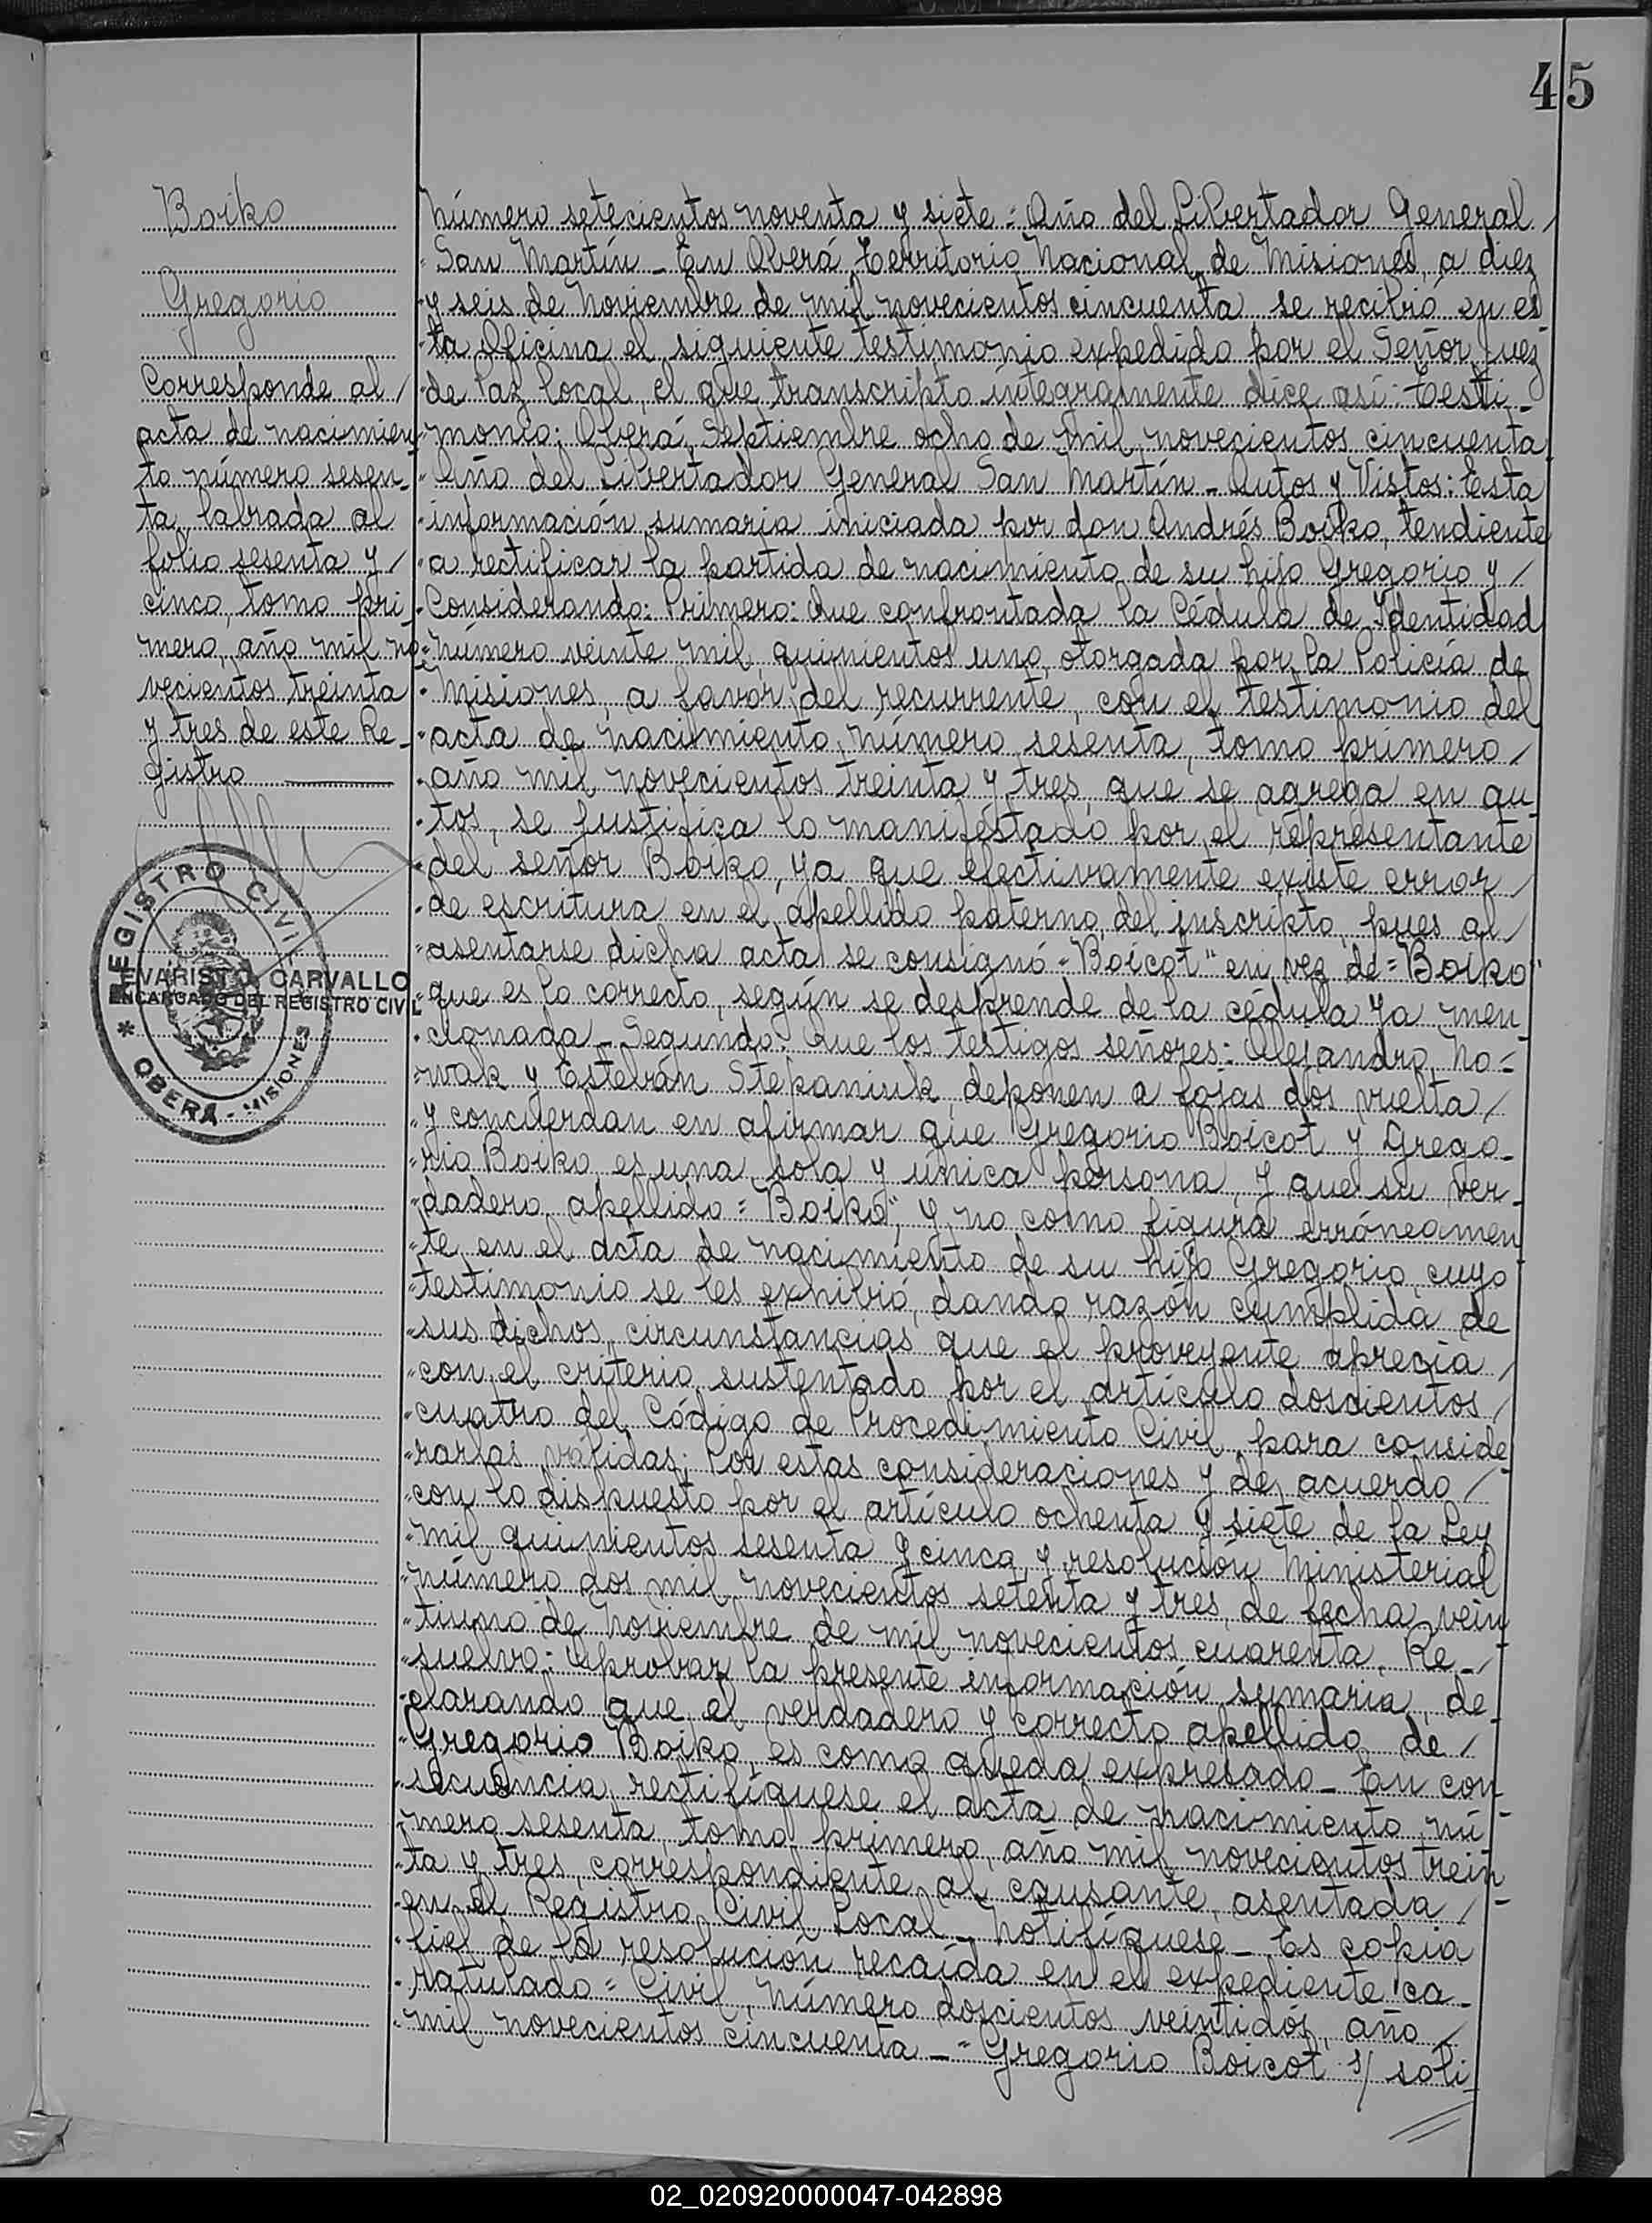 45
Boiko
Gregorio
Corresponde al /
acta de nacimien
to número sesen-
ta, labrada al
folio sesenta y /
cinco, tomo pri
mero, año mil no
vecientos treinta
y tres de este Re-
gistro
REGISTRO CIVIL
EVARISTO J. CARVALLO
ENCARGADO DEL REGISTRO CIVIL
* OBERA - MISIONES
Número setecientos noventa y siete = Año del Libertador General /
San Martín - En Oberá, Territorio Nacional de Misiones, a diez
y seis de Noviembre de mil novecientos cincuenta se recibió en es
ta Oficina el siguiente testimonio expedido por el Señor Juez
de Paz local, el que transcripto íntegramente dice así: Testi-
monio: Oberá, Septiembre ocho de mil novecientos cincuenta
Año del Libertador General San Martín - Autos y Vistos: Esta
información sumaria iniciada por don Andrés Boiko, tendiente
a rectificar la partida de nacimiento de su hijo Gregorio y /
Considerando: Primero: Que confrontada la Cédula de Identidad
número veinte mil quinientos uno, otorgada por la Policía de
Misiones, a favor del recurrente, con el testimonio del
acta de nacimiento número sesenta, tomo primero /
año mil novecientos treinta y tres, que se agrega en au
tos, se justifica lo manifestado por el representante
del señor Boiko, ya que efectivamente existe error /
de escritura en el apellido paterno del inscripto, pues al /
asentarse dicha acta se consignó "Boicot" en vez de = Boiko"
que es lo correcto, según se desprende de la cédula ya men
cionada - Segundo: Que los testigos señores: Alejandro No=
wak y Estebán Stepaniuk, deponen a fojas dos vuelta /
y concuerdan en afirmar que Gregorio Boicot y Grego-
rio Boiko es una sola y única persona, y que su ver-
dadero apellido = "Boiko", y no como figura erróneamen
te en el acta de nacimiento de su hijo Gregorio, cuyo
testimonio se les exhibió, dando razón cumplida de
sus dichos, circunstancias que el proveyente aprecia /
con el criterio sustentado por el artículo doscientos /
cuatro del Código de Procedimiento Civil, para conside
rarlas válidas; Por estas consideraciones y de acuerdo /
con lo dispuesto por el artículo ochenta y siete de la Ley
mil quinientos sesenta y cinco y resolución Ministerial
número dos mil novecientos setenta y tres, de fecha vein
tiuno de Noviembre de mil novecientos cuarenta, Re-/
suelvo: Aprobar la presente información sumaria, de-
clarando que el verdadero y correcto apellido de /
Gregorio Boiko, es como queda expresado - En con
secuencia rectifíquese el acta de nacimiento nú-
mero sesenta, tomo primero, año mil novecientos trein
ta y tres, correspondiente al causante, asentada /
en el Registro Civil Local - Notifíquese - Es copia
fiel de la resolución recaída en el expediente ca-
ratulado = Civil, número doscientos veintidós, año /
mil novecientos cincuenta - "Gregorio Boicot s/ soli-
02_020920000047-042898